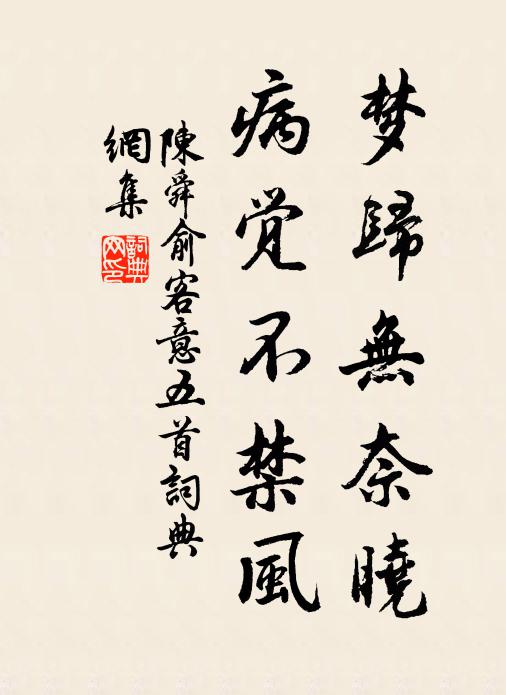 梦歸無奈曉
病觉不禁風
陳舜俞客意五首詞典
網集
詞典網印